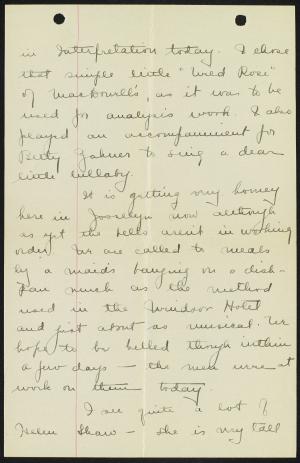 in Interpretation today. I chose
that simple little "Wild Rose"
of MacDowell's, as it was to be
used for analysis work. I also
played an accompaniment for
Betty Zahner to sing a dear
little lullaby.
It is getting very homey
here in Josselyn now although
as yet the bells aren't in working
order. We are called to meals
by a maids banging on a dish-
pan much as the method
used in the Windsor Hotel
and just about as musical. We
hope to be belled though within
a few days — the men were at
work on them today.
I see quite a lot of
Helen Shaw — she is my tall